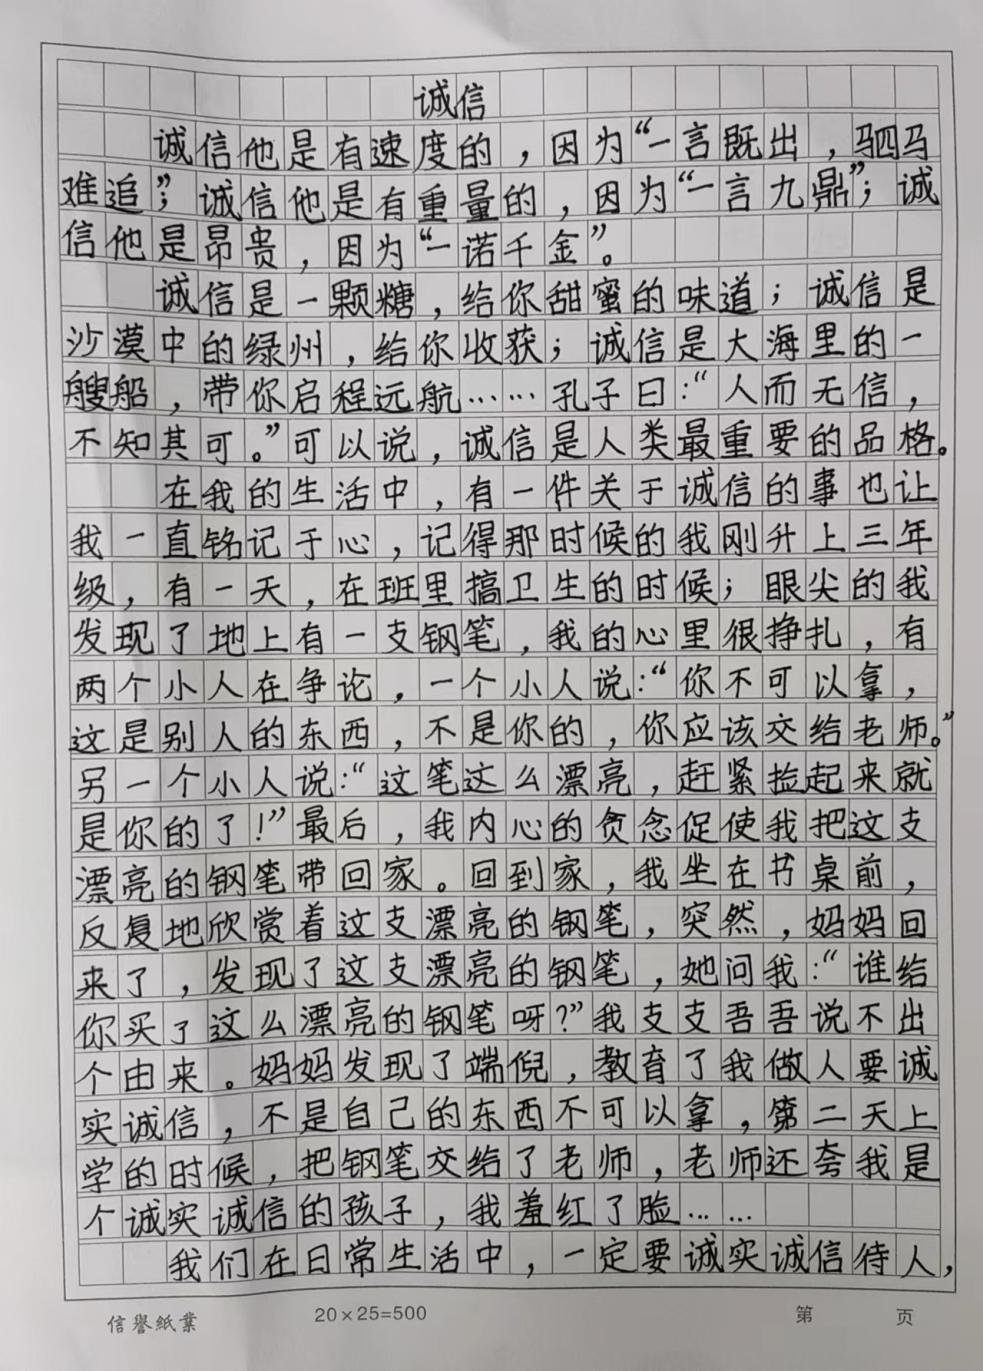 诚信
诚信他是有速度的，因为“一言既出，驷马
难追”；诚信他是有重量的，因为“一言九鼎”；诚
信他是昂贵，因为“一诺千金”。
诚信是一颗糖，给你甜蜜的味道；诚信是
沙漠中的绿州，给你收获；诚信是大海里的一
艘船，带你启程远航……孔子曰：“人而无信，
不知其可。”可以说，诚信是人类最重要的品格。
在我的生活中，有一件关于诚信的事也让
我一直铭记于心，记得那时候的我刚升上三年
级，有一天，在班里搞卫生的时候；眼尖的我
发现了地上有一支钢笔，我的心里很挣扎，有
两个小人在争论，一个小人说：“你不可以拿，
这是别人的东西，不是你的，你应该交给老师。”
另一个小人说：“这笔这么漂亮，赶紧捡起来就
是你的了！”最后，我内心的贪念促使我把这支
漂亮的钢笔带回家。回到家，我坐在书桌前，
反复地欣赏着这支漂亮的钢笔，突然，妈妈回
来了，发现了这支漂亮的钢笔，她问我：“谁给
你买了这么漂亮的钢笔呀？”我支支吾吾说不出
个由来。妈妈发现了端倪，教育了我做人要诚
实诚信，不是自己的东西不可以拿，第二天上
学的时候，把钢笔交给了老师，老师还夸我是
个诚实诚信的孩子，我羞红了脸……
我们在日常生活中，一定要诚实诚信待人，
信譽紙業 20×25=500 第 页